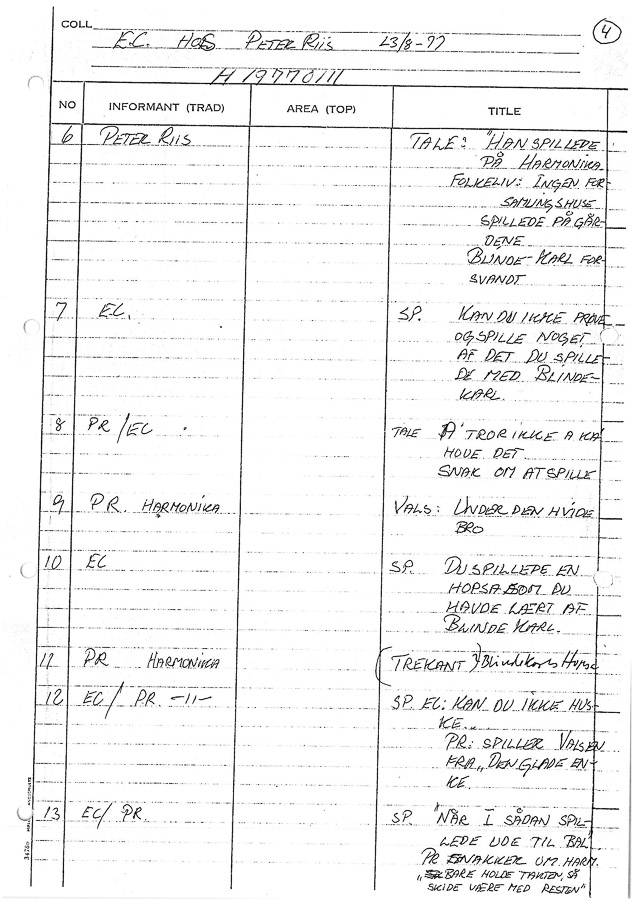 4
COLL
E.C. HOS PETER RIIS 23/8-97
H 19770111
NO INFORMANT (TRAD) AREA (TOP) TITLE
6 PETER RIIS TALE: "HAN SPILLEDE
PÅ HARMONIKA
FOLKELIV: INGEN FOR-
SAMLINGSHUSE
SPILLEDE PÅ GÅR-
DENE
BLINDE-KARL FOR-
SVANDT
7 EC. SP. KAN DU IKKE PRØVE
OG SPILLE NOGET
AF DET DU SPILLE-
DE MED BLINDE-
KARL.
8 PR/EC TALE A' TROR IKKE A KA'
HOVE DET
SNAK OM AT SPILLE
9 PR. HARMONIKA VALS: UNDER DEN HVIDE
BRO
10 EC SP. DU SPILLEDE EN
HOPSA SOM DU
HAVDE LÆRT AF
BLINDE KARL.
11 PR HARMONIKA (TREKANT?) Blindekarls Hopsa
12 EC/ PR. -11- SP. EC: KAN DU IKKE HUS-
KE...
PR: SPILLER VALSEN
FRA „DEN GLADE EN-
KE.
13 EC/ PR. SP. "NÅR I SÅDAN SPIL-
LEDE UDE TIL BAL"
PR SNAKKER OM HARM.
„BARE HOLDE TAKTEN, SÅ
SKIDE VÆRE MED RESTEN"